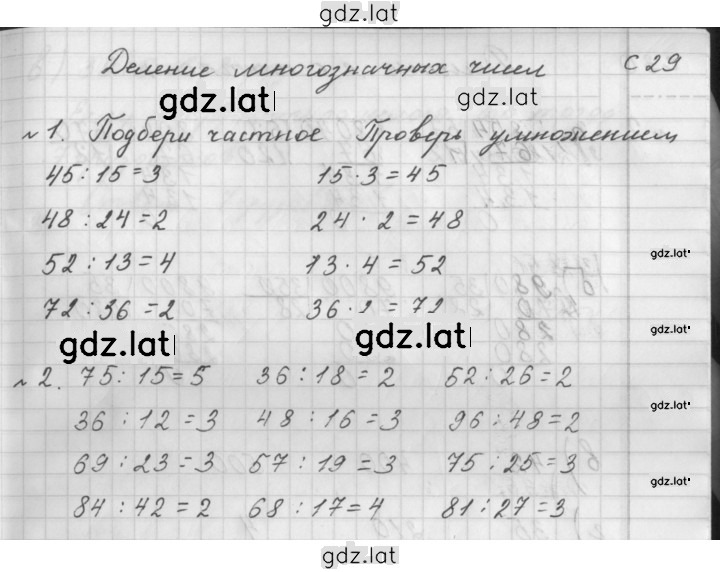 gdz.lat
Деление многозначных чисел с 29
gdz.lat gdz.lat
№ 1. Подбери частное Проверь умножением
45 : 15 = 3 15 · 3 = 45
48 : 24 = 2 24 · 2 = 48
52 : 13 = 4 13 · 4 = 52
gdz.lat
72 : 36 = 2 36 · 2 = 72
gdz.lat gdz.lat gdz.lat
№ 2. 75 : 15 = 5 36 : 18 = 2 52 : 26 = 2
gdz.lat
36 : 12 = 3 48 : 16 = 3 96 : 48 = 2
69 : 23 = 3 57 : 19 = 3 75 : 25 = 3
gdz.lat
84 : 42 = 2 68 : 17 = 4 81 : 27 = 3
gdz.lat